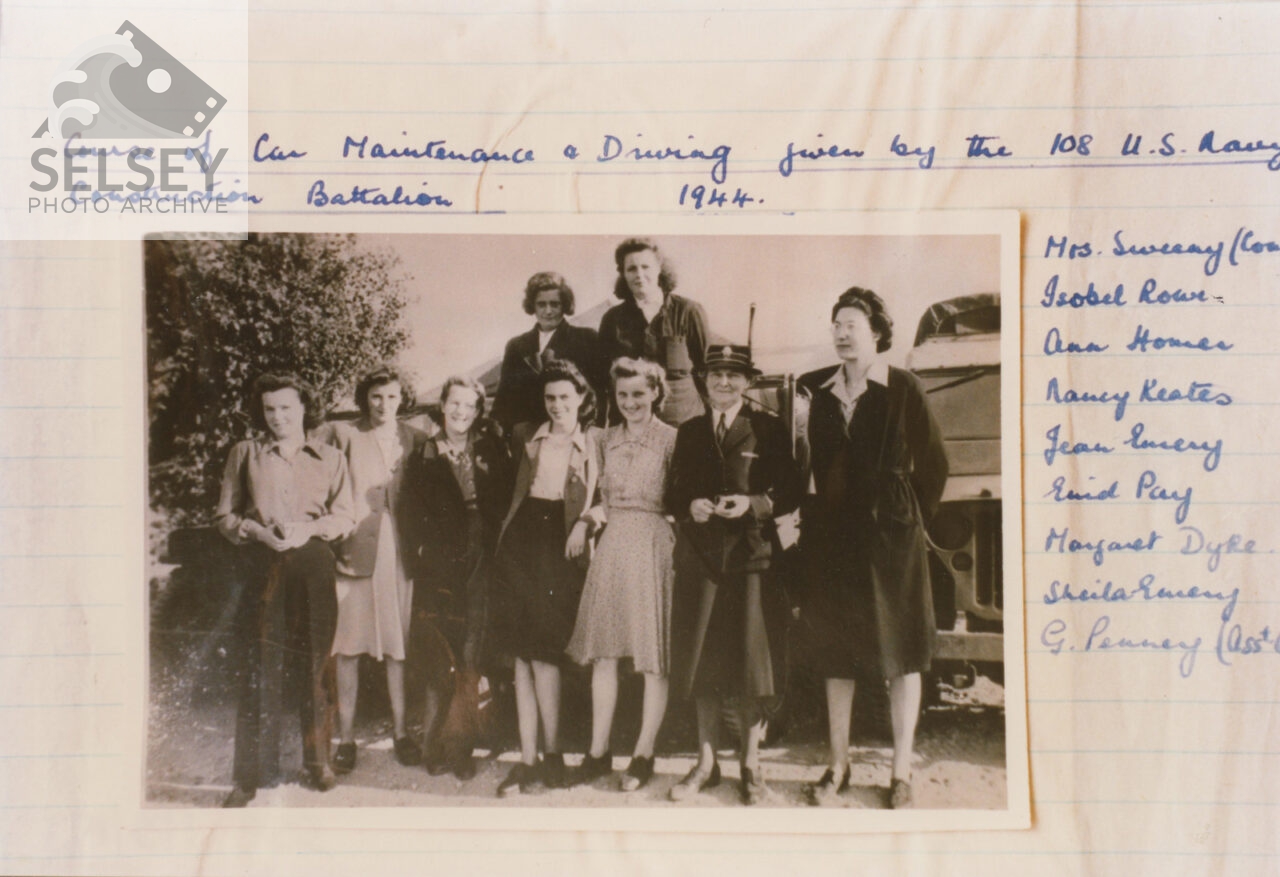 SELSEY
PHOTO ARCHIVE
Course of Car Maintenance & Driving given by the 108 U.S. Navy
Construction Battalion 1944.
Mrs. Sweeny (Com
Isobel Rowe
Ann Homer
Nancy Keates
Jean Emery
Enid Pay
Margaret Dyke.
Sheila Emery
G. Penney (Asst